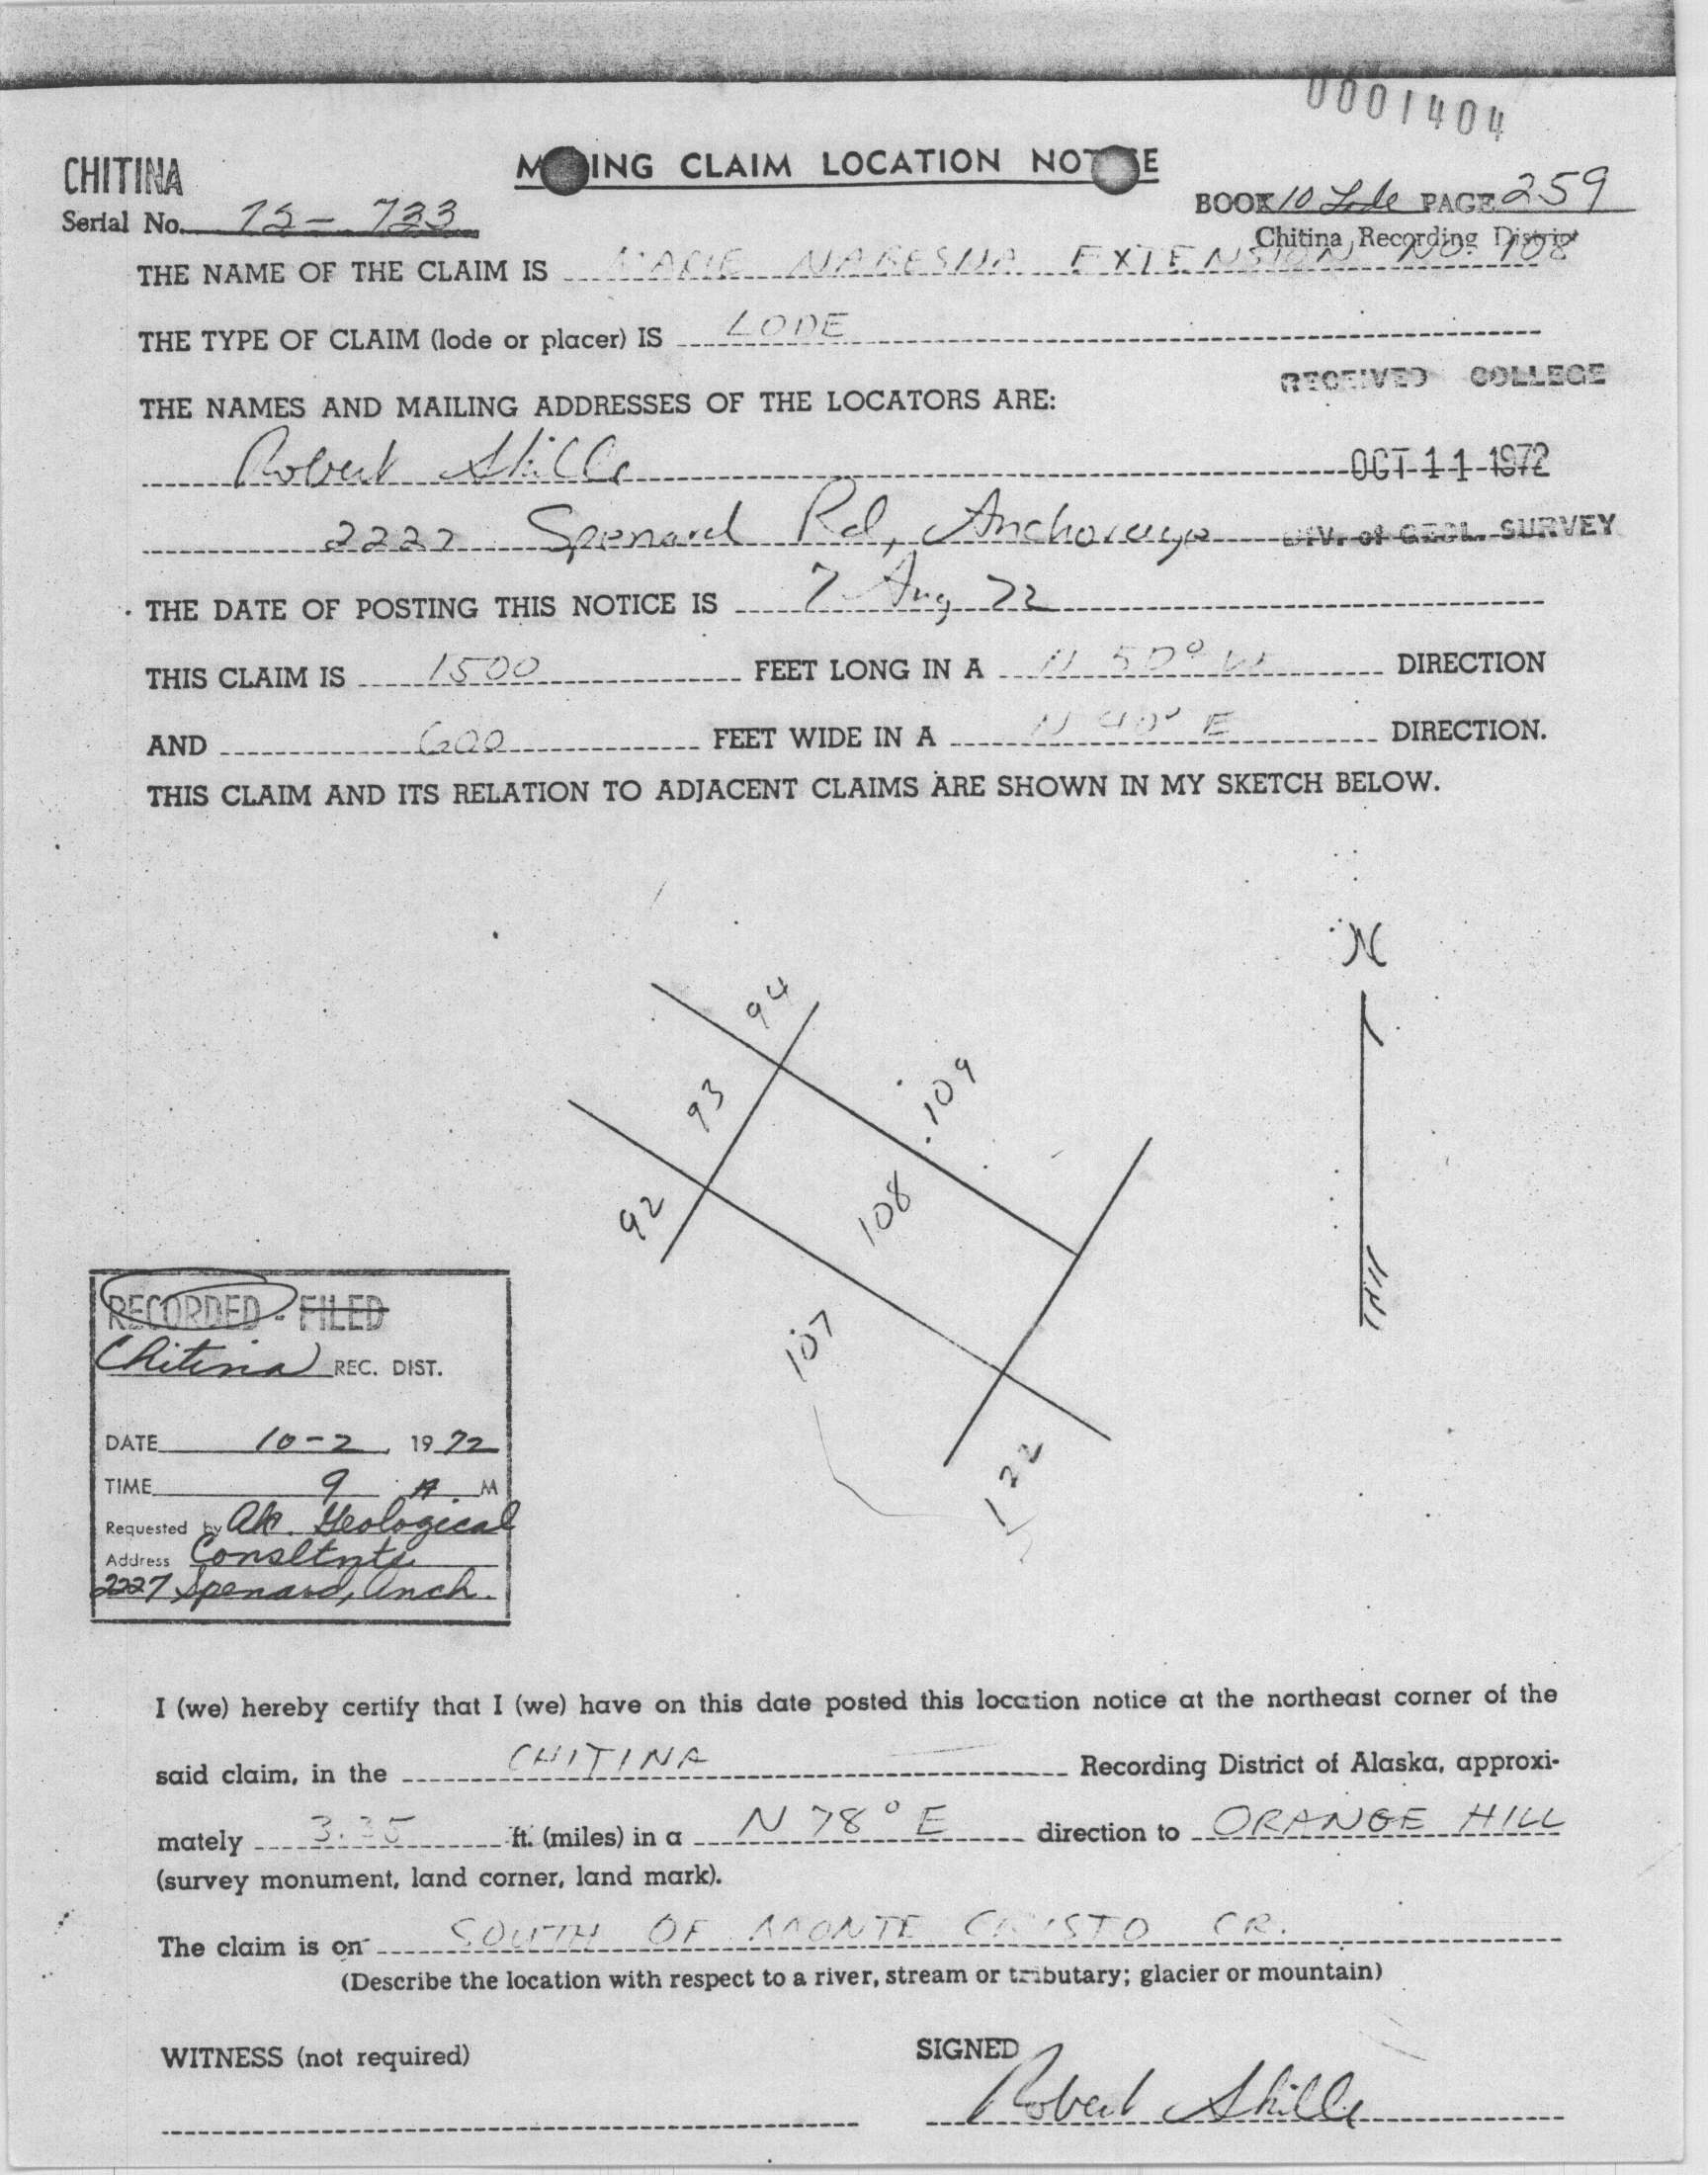 0001404
CHITINA
MINING CLAIM LOCATION NOTICE
BOOK 10 Lode PAGE 259
Serial No. 72-733
Chitina Recording District
THE NAME OF THE CLAIM IS MARIE NABESNA EXTENSION NO. 108
THE TYPE OF CLAIM (lode or placer) IS LODE
RECEIVED COLLEGE
THE NAMES AND MAILING ADDRESSES OF THE LOCATORS ARE:
Robert Skille
OCT 11 1972
2227 Spenard Rd, Anchorage
DIV. of GEOL. SURVEY
THE DATE OF POSTING THIS NOTICE IS 7 Aug 72
THIS CLAIM IS 1500 FEET LONG IN A N 50° W DIRECTION
AND 600 FEET WIDE IN A N 40° E DIRECTION.
THIS CLAIM AND ITS RELATION TO ADJACENT CLAIMS ARE SHOWN IN MY SKETCH BELOW.
N
94
93
109
92
108
107
122
RECORDED - FILED
Chitina REC. DIST.
DATE 10-2, 1972
TIME 9 A. M
Requested by Ak. Geological
Address Consltnts
2227 Spenard, Anch.
I (we) hereby certify that I (we) have on this date posted this location notice at the northeast corner of the
said claim, in the CHITINA Recording District of Alaska, approxi-
mately ft. (miles) in a N 78° E direction to ORANGE HILL
(survey monument, land corner, land mark).
The claim is on SOUTH OF MONTE CRISTO CR.
(Describe the location with respect to a river, stream or tributary; glacier or mountain)
WITNESS (not required)
SIGNED
Robert Skille